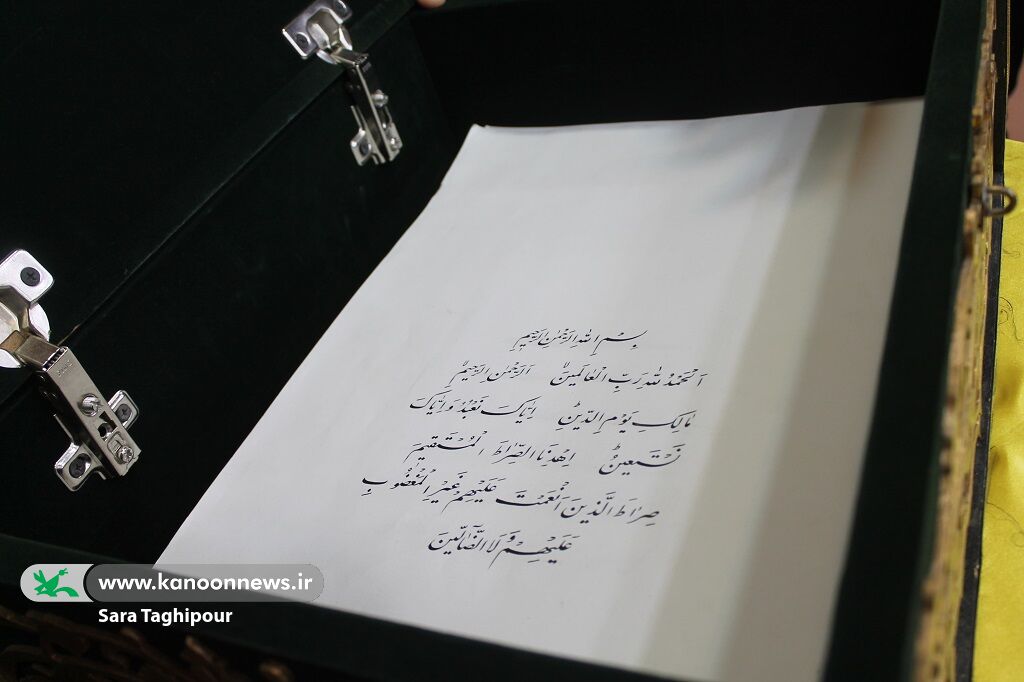 بِسْمِ اللهِ الرَّحْمٰنِ الرَّحِيمِ
اَلْحَمْدُ لِلّٰهِ رَبِّ الْعَالَمِينَ اَلرَّحْمٰنِ الرَّحِيمِ
مَالِكِ يَوْمِ الدِّينِ اِيَّاكَ نَعْبُدُ وَ اِيَّاكَ
نَسْتَعِينُ اِهْدِنَا الصِّرَاطَ الْمُسْتَقِيمَ
صِرَاطَ الَّذِينَ اَنْعَمْتَ عَلَيْهِمْ غَيْرِ الْمَغْضُوبِ
عَلَيْهِمْ وَلَا الضَّالِّينَ
www.kanoonnews.ir
Sara Taghipour